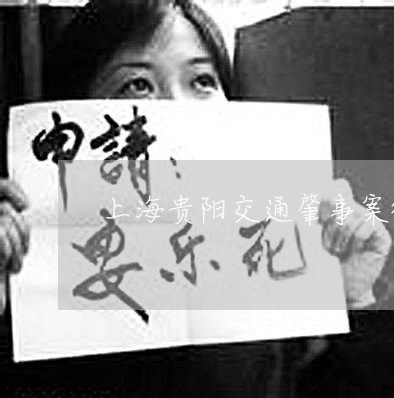 申請：
上海贵阳交通肇事案
安乐死